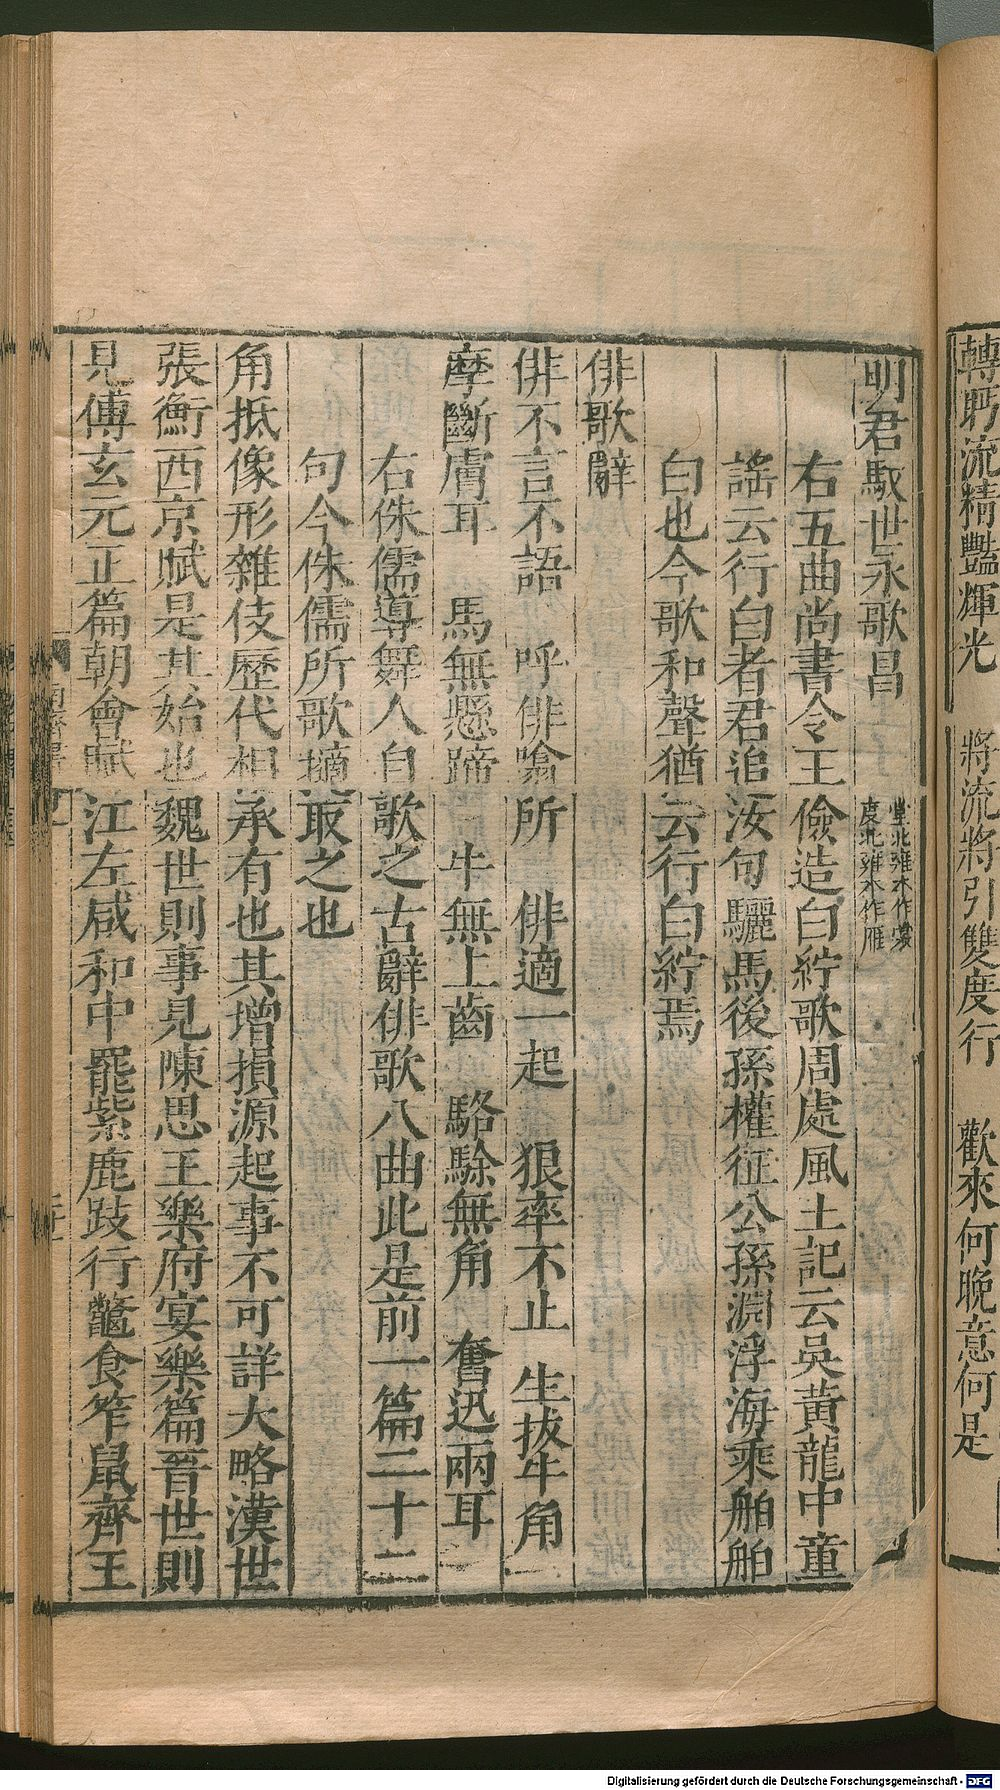 轉眄流精艷輝光　將流將引雙度行　歡來何晚意何是
明君馭世永歌昌
堂北雍本作裳
度北雍本作雁
右五曲尚書令王儉造白紵歌周處風土記云吳黃龍中童
謠云行白者君追汝句驪馬後孫權征公孫淵浮海乘舶舶
白也今歌和聲猶云行白紵焉
俳歌辭
俳不言不語　呼俳噏所　俳適一起　狼率不止　生拔牛角
摩斷膚耳　馬無懸蹄　牛無上齒　駱駼無角　奮迅兩耳
右侏儒導舞人自歌之古辭俳歌八曲此是前一篇二十二
句今侏儒所歌擿取之也
角抵像形雜伎歷代相承有也其增損源起事不可詳大略漢世
張衡西京賦是其始也魏世則事見陳思王樂府宴樂篇晉世則
見傅玄元正篇朝會賦江左咸和中罷紫鹿跂行鼈食笮鼠齊王
Digitalisierung gefördert durch die Deutsche Forschungsgemeinschaft - DFG